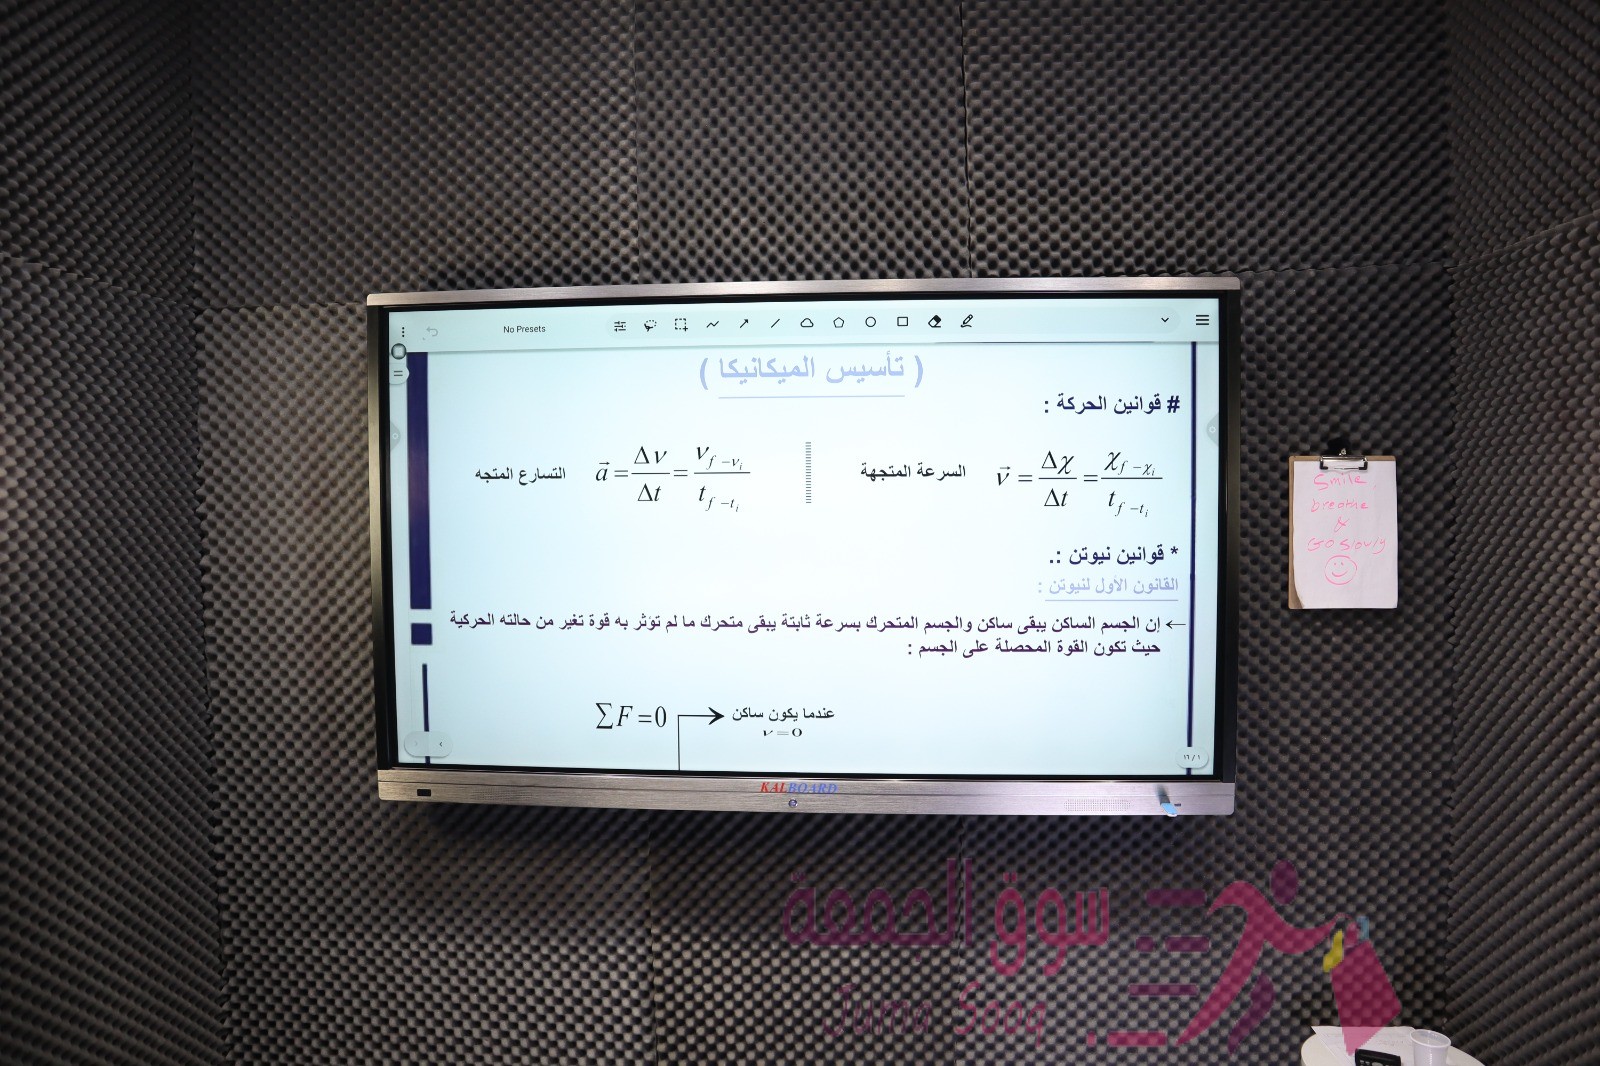 No Presets
( تأسيس الميكانيكا )
# قوانين الحركة :
السرعة المتجهة v⃗ = Δχ/Δt = χf −χi / t f −ti
التسارع المتجه a⃗ = Δν/Δt = νf −νi / t f −ti
* قوانين نيوتن :.
القانون الأول لنيوتن :
← إن الجسم الساكن يبقى ساكن والجسم المتحرك بسرعة ثابتة يبقى متحرك ما لم تؤثر به قوة تغير من حالته الحركية
حيث تكون القوة المحصلة على الجسم :
∑F=0 → عندما يكون ساكن
ν=0
١ / ١٦
KALBOARD
Smile
breathe
&
GO Slowly
سوق الجمعة
Juma Sooq